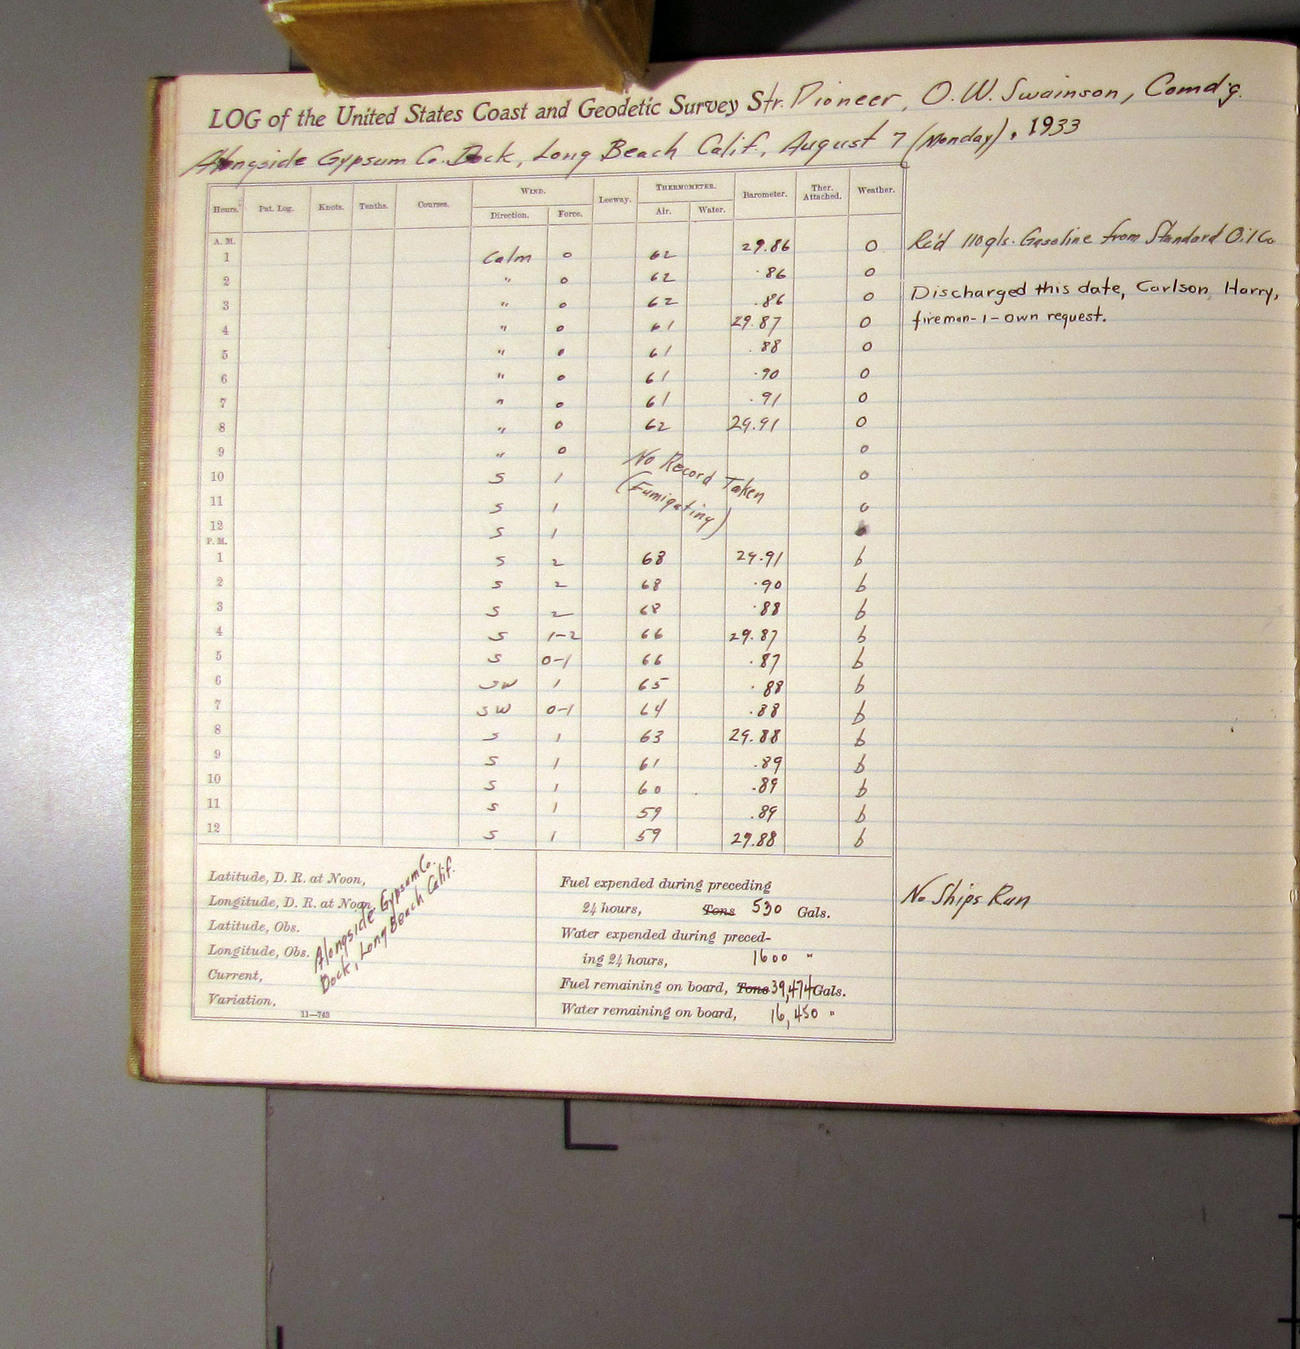 LOG of the United States Coast and Geodetic Survey Str. Pioneer, O.W. Swainson, Comd'g.
Alongside Gypsum Co. Dock, Long Beach Calif., August 7 (Monday), 1933
Hours. Pat. Log. Knots. Tenths. Courses. WIND. Leeway. THERMOMETER. Barometer. Ther. Attached. Weather.
Direction. Force. Air. Water.
A. M.
1 Calm 0 62 29.86 o Rc'd 110 gls. Gasoline from Standard Oil Co
2 " 0 62 .86 o
3 " 0 62 .86 o Discharged this date, Carlson, Harry,
4 " 0 61 29.87 o fireman-1-own request.
5 " 0 61 .88 o
6 " 0 61 .90 o
7 " 0 61 .91 o
8 " 0 62 29.91 o
9 " 0 No Record Taken o
10 S 1 (Fumigating) o
11 S 1 o
12 S 1
P. M.
1 S 2 68 29.91 b
2 S 2 68 .90 b
3 S 2 68 .88 b
4 S 1-2 66 29.87 b
5 S 0-1 66 .87 b
6 SW 1 65 .88 b
7 SW 0-1 64 .88 b
8 S 1 63 29.88 b
9 S 1 61 .89 b
10 S 1 60 .89 b
11 S 1 59 .89 b
12 S 1 59 29.88 b
Latitude, D. R. at Noon,
Longitude, D. R. at Noon,
Latitude, Obs.
Longitude, Obs.
Current,
Variation,
Alongside Gypsum Co.
Dock, Long Beach Calif.
11—743
Fuel expended during preceding
24 hours, Tons 530 Gals.
Water expended during preced-
ing 24 hours, 1600 "
Fuel remaining on board, Tons 39,474 Gals.
Water remaining on board, 16,450 "
No Ships Run